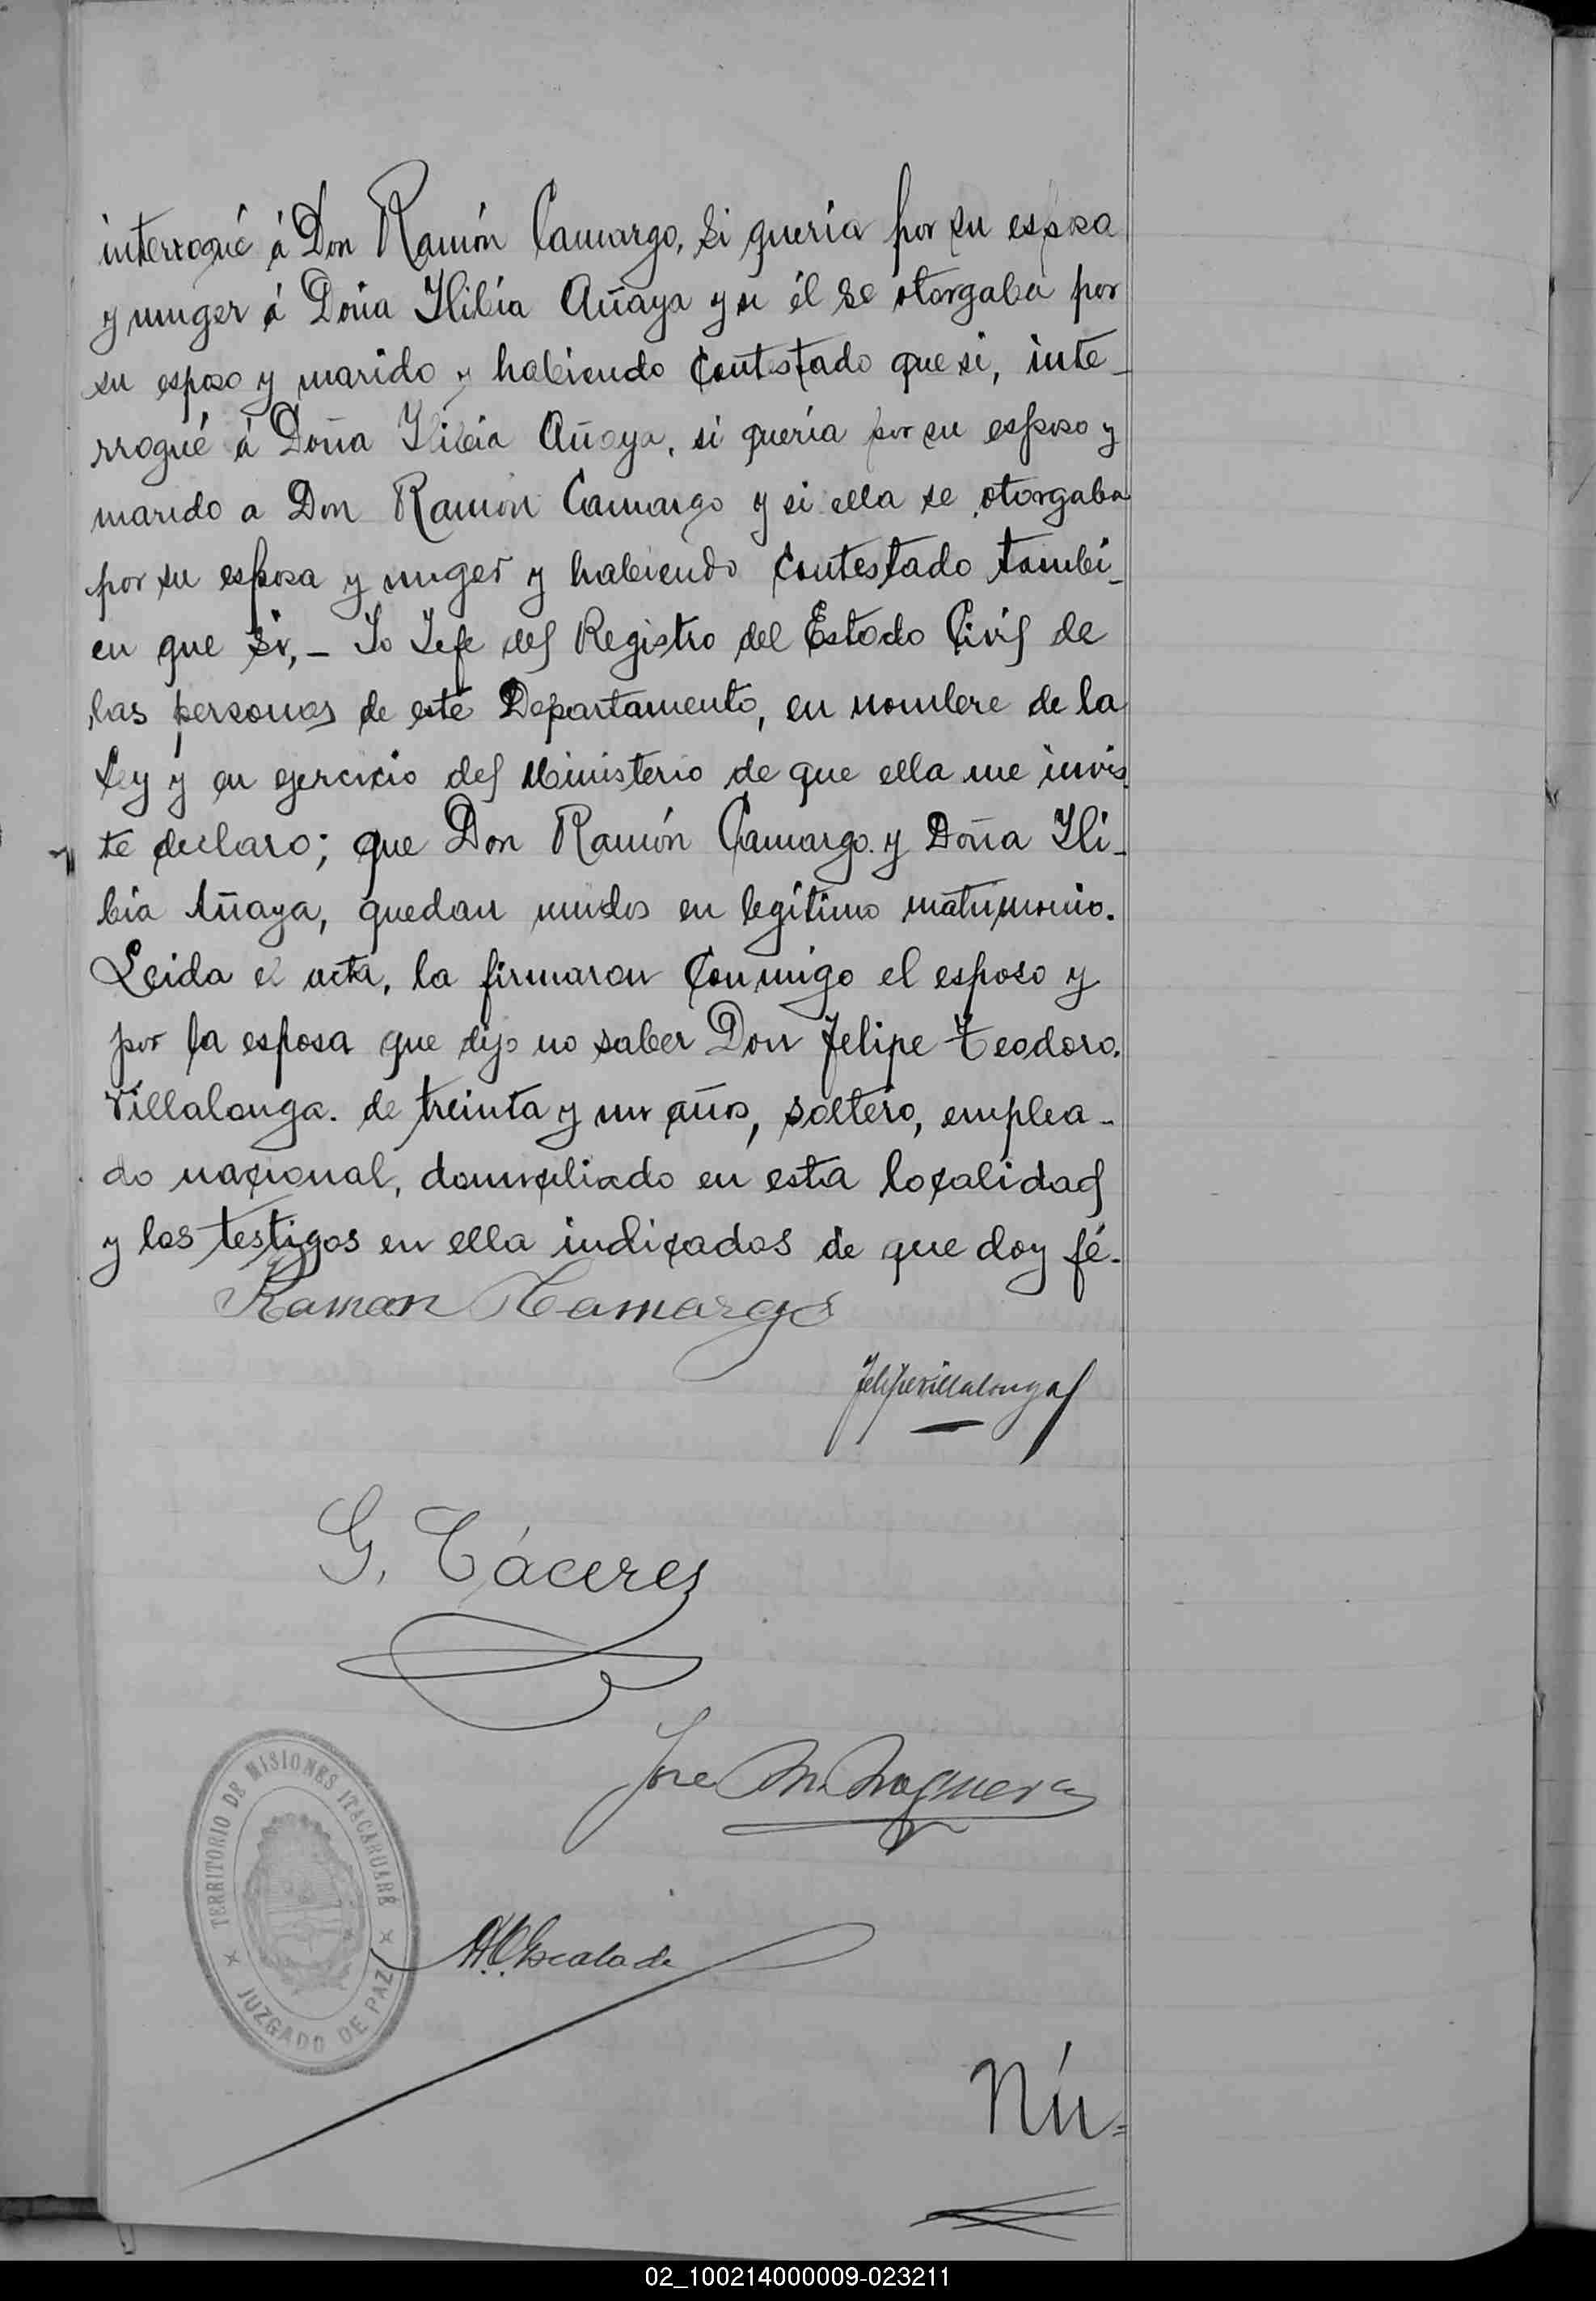 interrogué á Don Ramón Camargo, si quería por su esposa
y muger á Doña Ilibia Añaya y si él se otorgaba por
su esposo y marido y habiendo contestado que si, inte_
rrogué á Doña Ilibia Añaya, si quería por su esposo y
marido a Don Ramón Camargo y si ella se otorgaba
por su esposa y muger y habiendo contestado tambi_
en que si, _ Yo Jefe del Registro del Estado Civil de
las personas de este Departamento, en nombre de la
Ley y en ejercicio del Ministerio de que ella me invis_
te declaro; que Don Ramón Camargo. y Doña Ili_
bia Añaya, quedan unidos en legítimo matrimonio.
Leida el acta, la firmaron conmigo el esposo y
por la esposa que dijo no saber Don Felipe Teodoro.
Villalonga. de treinta y un años, soltero, emplea_
do nacional, domiciliado en esta localidad
y los testigos en ella indicados de que doy fé.
Ramon Camargo
Felipe Villalonga
G. Cáceres
Jose M. Noguera
TERRITORIO DE MISIONES ITACARUARÉ
JUZGADO DE PAZ
Escalada
Nú=
02_100214000009-023211